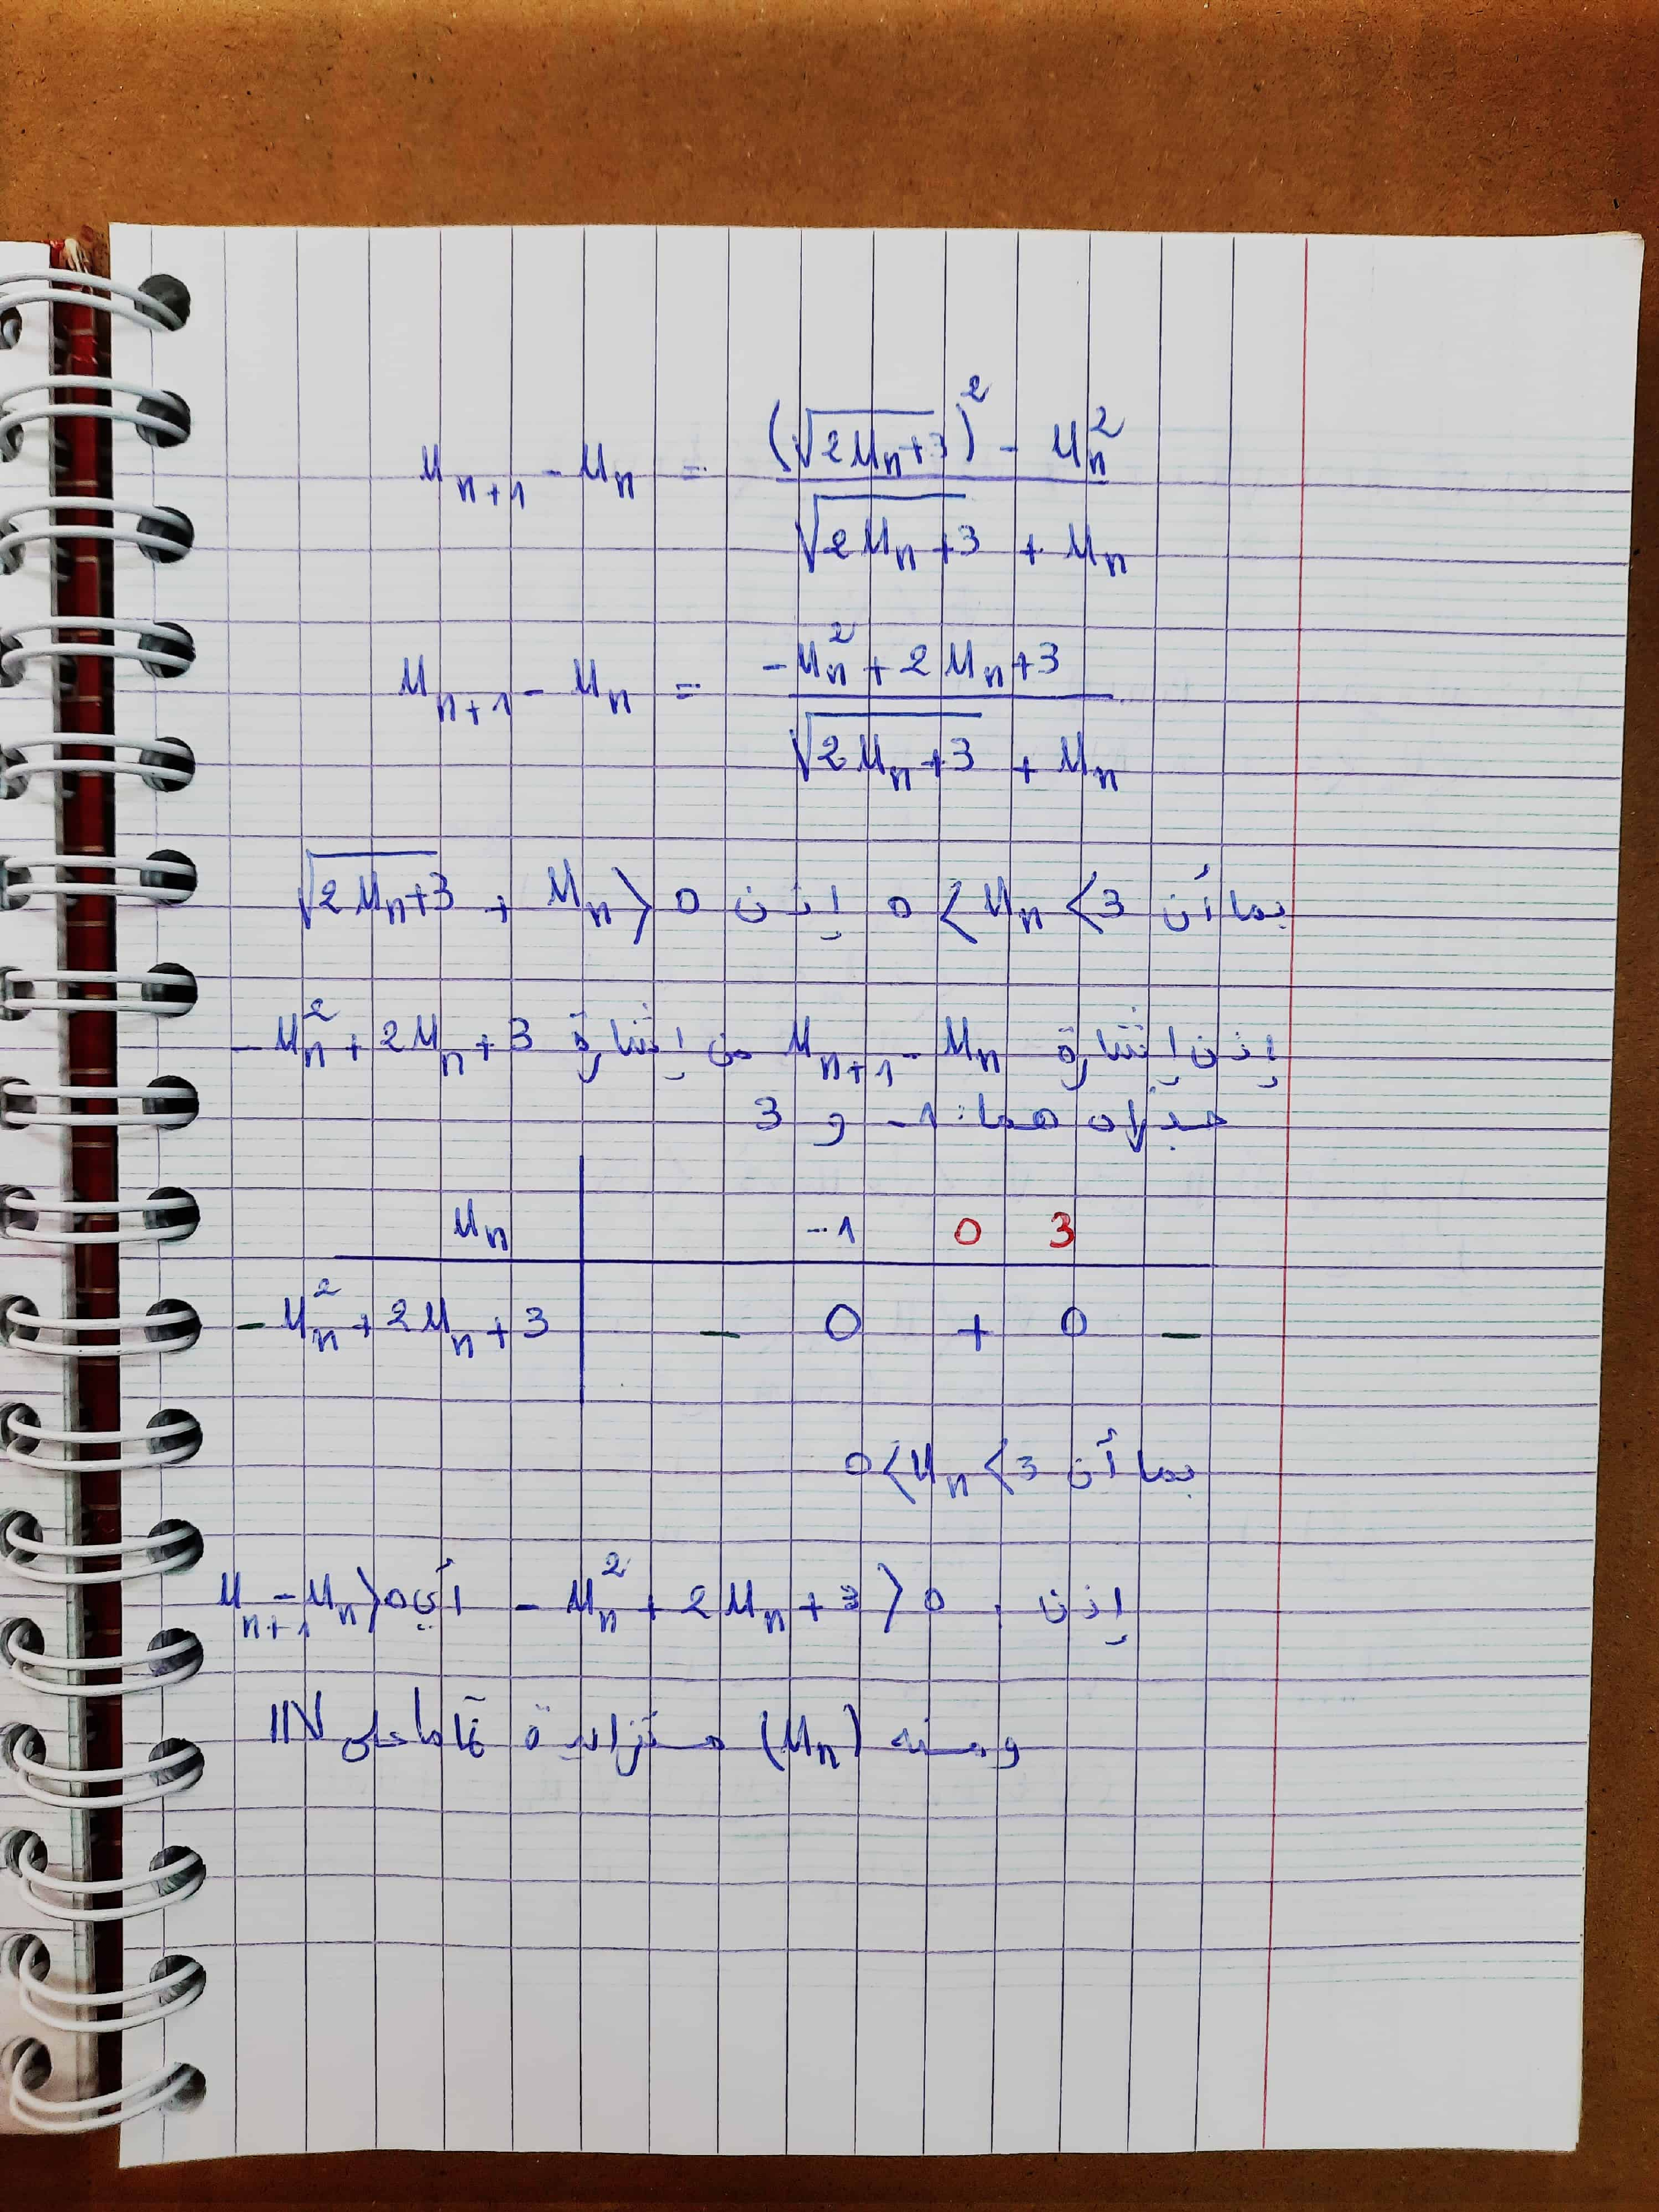 u_{n+1} - u_n = \frac{(\sqrt{2u_n+3})^2 - u_n^2}{\sqrt{2u_n+3} + u_n}
u_{n+1} - u_n = \frac{-u_n^2 + 2u_n + 3}{\sqrt{2u_n+3} + u_n}
بما أن 0 < u_n < 3 إذن \sqrt{2u_n+3} + u_n > 0
إذن إشارة u_{n+1} - u_n من إشارة -u_n^2 + 2u_n + 3
جذراه هما: -1 و 3
u_n | -1 0 3
-u_n^2 + 2u_n + 3 | - 0 + 0 -
بما أن 0 < u_n < 3
إذن، -u_n^2 + 2u_n + 3 > 0 أي u_{n+1} - u_n > 0
ومنه (u_n) متزايدة تماما على ℕ